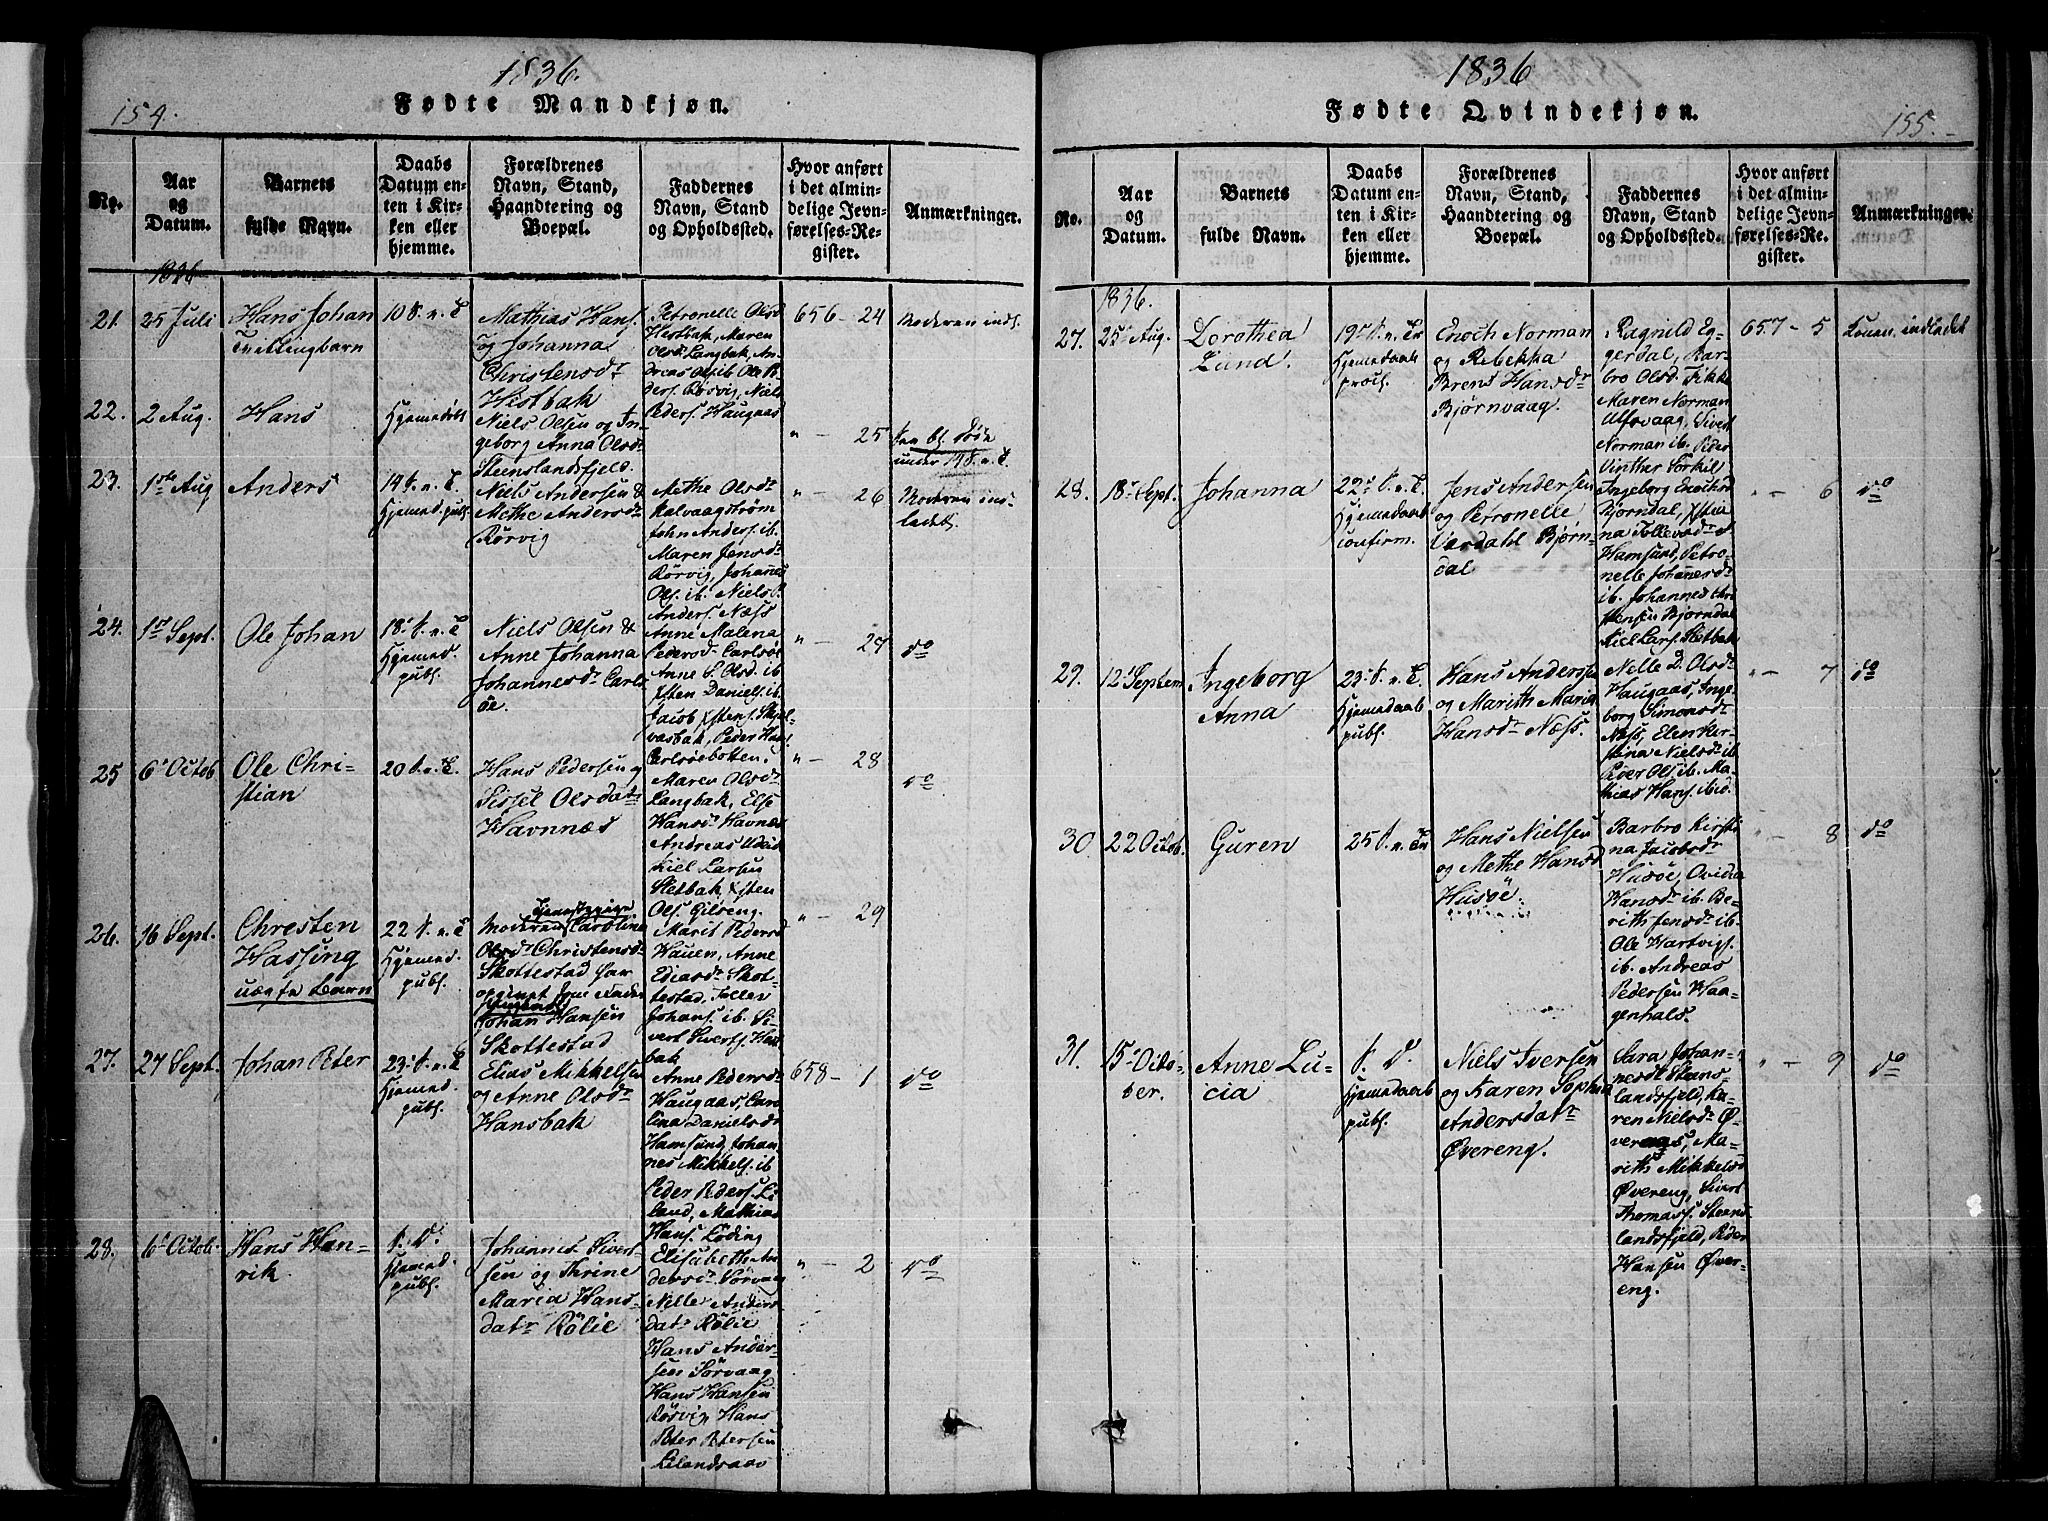 154.
1836.
Fødte Mandkjøn.
No.
Aar
og
Datum.
Barnets
fulde Navn.
Daabs
Datum en-
ten i Kir-
ken eller
hjemme.
Forældrenes
Navn, Stand,
Haandtering og
Boepæl.
Faddernes
Navn, Stand
og Opholdssted.
Hvor anført
i det almin-
delige Jevn-
førelses-Re-
gister.
Anmærkninger.
1836
21.
25 Juli
Hans Johan
Tvillingbarn
10 S. n. T
Mathias Hans.
og Johanna
Christensdr
Hestbak
Petronelle Olsd
Hestbak, Maren
Olsd. Langbak, An-
dreas Ols ib Ole Pe-
ders. Rørvig, Niels
Peders. Haugaas
656 - 24
Moderen inds.
22.
2 Aug.
Hans
Hjemedøbt
Niels Olsen og In-
geborg Anna Olsdr
Steenslandsfjeld.
" - 25
under 19 S. n. T.
23.
1ste Aug
Anders
14 S. n. T.
Hjemed. pubs.
Niels Andersen &
Methe Andersdr
Rørvig
Methe Olsdr
Kalvaagstrøm
John Anders. ib.
Maren Jensdr
Rørvig, Johannes
Ols. ib. Niels
Anders. Næss
" - 26
Moderen ind-
ladet.
24.
1ste Sept.
Ole Johan
18 S. n. T
Hjemed.
pubs.
Niels Olsen &
Anne Johanna
Johannesdr Carls-
öe.
Anne Malena
Pedersd. Carlsöe
Anne S. Olsd. ib
Xsten Daniels. ib.
Jacob Xstens. Skjel-
vasbak, Peder Hans.
Carlsöebotten.
" - 27
do
25
6 Octob
Ole Chri-
stian
20 S. n. T.
Hans Pedersen og
Sissel Olsdatr
Havnnæs
Maren Olsdr
Langbak, Else
Hansdr Havnæs
Andreas
kiel Larsen
Sletbak, Xsten
Ols. Gilseng.
" - 28
do
26.
16 Sept.
Chresten
Hassing
uægte Barn
22 S. n. T
Hjemed.
pubs.
Moderen Tjenestepige Caroline
Olsdr Christensdr
Skottestad
Johan Hansen
Skottestad
Marit Pedersd
Hauen, Anne
Ediasdr Skot-
testad, Toller
Johans. ib. Si-
vert Siverts. Hest-
bak
" - 29
27.
27 Sept.
Johan Peter
23 S. n. T
Hjemed.
pubs.
Elias Mikkelsen
og Anne Olsdr
Hansbak
Anne Pedersdr
Haugaas, Caro-
lina Danielsdr
Hamsund, Johan-
nes Mikkels. ib
Peder Peders. Li-
land, Mathias
Hans. Löding
658 - 1
do
28.
6 Octob.
Hans Hen-
rik.
S. D.
Hjemed.
pubs.
Johannes Siver-
sen og Thrine
Maria Hans-
datr Rölie
Elisabeth An-
dersdr Sørvaag
Nelle Anders-
datr Rölie
Hans Ander-
sen Sørvaag
Hans Hansen
Rörvig, Hans
Peter Petersen
Lilandsaas
" - 2
do
155.
1836
Fødte Qvindekjøn.
No.
Aar
og
Datum.
Barnets
fulde Navn.
Daabs
Datum en-
ten i Kir-
ken eller
hjemme.
Forældrenes
Navn, Stand,
Haandtering og
Boepæl.
Faddernes
Navn, Stand
og Opholdssted.
Hvor anført
i det almin-
delige Jevn-
førelses-Re-
gister.
Anmærkninger.
1836.
27.
25 Aug.
Dorothea
Lund.
19 S. n. Tr
Hjemedaab
Enoch Norman
og Rebekka
Brens Hansdr
Bjørnvaag.
Ragnild Eg-
gerdal, Bar-
bro Olsd. Fikke
Maren Norman
Ulfsvaag, Sivert
Norman ib. Peder
Vinther Torkil
657 - 5
Konen indladet
28.
18 Sept.
Johanna
22 S. n. T.
Hjemedaab
confirm.
Jens Andersen
og Petronelle
Verdahl Bjørn-
dal
Ingeborg Enoksd
Bjørndal, Xsten-
na Tollevsdr
Hamsund, Petro-
nelle Johannesdr
ib. Johannes
Jensen Bjørndal
Niel Lars. Sletbak
" - 6
do
29.
12 Septem
Ingeborg
Anna
23 S. n. T.
Hjemedaab
pubs.
Hans Andersen
og Marith Maria
Hansdr Næss.
Nelle D. Olsdr
Haugaas, Inge-
borg Simonsdr
Næss, Elen Ker-
stina Nielsdr ib
Peder Ols ib. Ma-
thias Hans. ibid.
" - 7
do
30.
22 Octob.
Guren
25 S. n. Tr
Hans Nielsen
og Methe Hansd
Husöe.
Barbro Kirsti-
na Jacobsdr
Husöe, Ovidia
Hansdr ib. Be-
rith Jensdr ib.
Ole Hartvigs.
ib. Andreas
Pedersen Haa-
genhals.
" - 8
do
31.
15 Octo-
ber.
Anne Lu-
cia
S. D.
Hjemedaab
pubs.
Niels Iversen
og Karen Sophia
Andersdatr
Øvereng.
Sara Johan-
nesdr Steens-
landsfjeld, Ka-
ren Nielsdr Ø-
vereng, Ma-
rith Mikkelsd
Øvereng, Sivert
Thomass. Steens-
landsfjeld, Peder
Hansen Øver-
eng.
" - 9
do